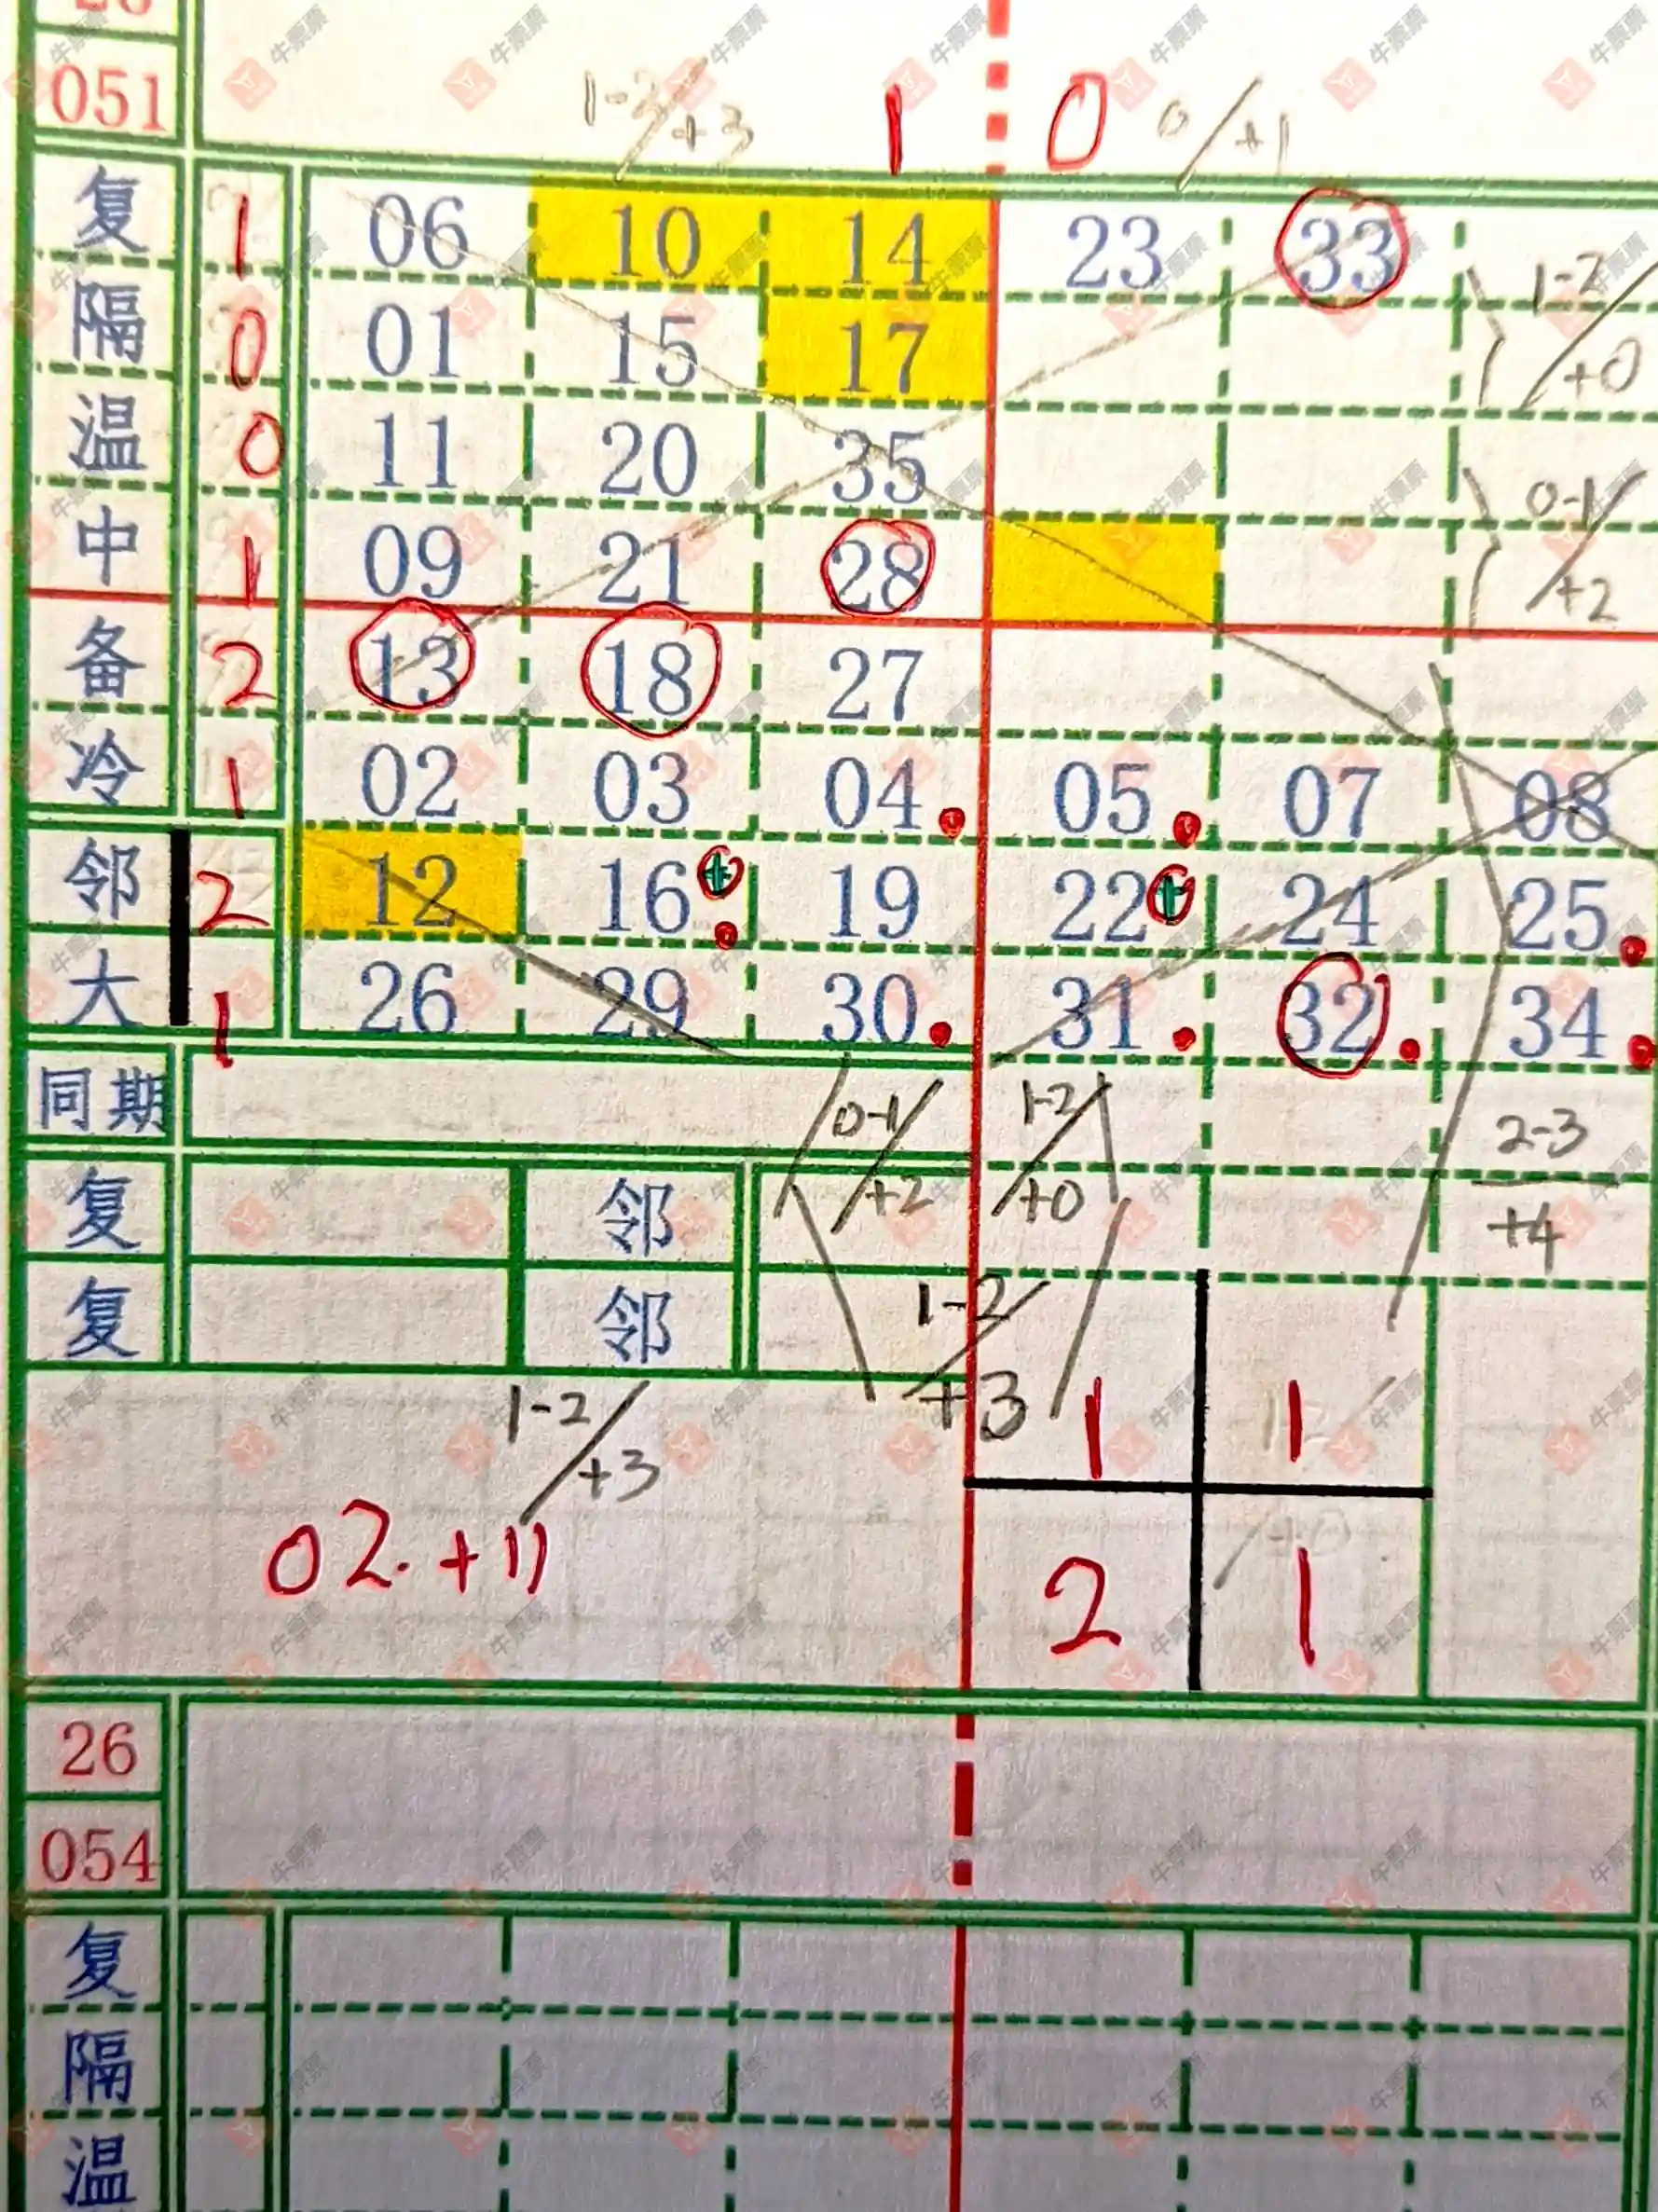 051 1-2/+3 1 0 0/+1
复 1 06 10 14 23 33
隔 0 01 15 17 1-2/+0
温 0 11 20 35
中 1 09 21 28 0-1/+2
备 2 13 18 27
冷 1 02 03 04 05 07 08
邻 2 12 16 19 22 24 25
大 1 26 29 30 31 32 34
同期 0-1/+2 1-2/+0 2-3/+4
复 邻
复 邻 1-2/+3
1-2/+3 1 1
02.+11 2 1
26
054
复
隔
温
牛票票